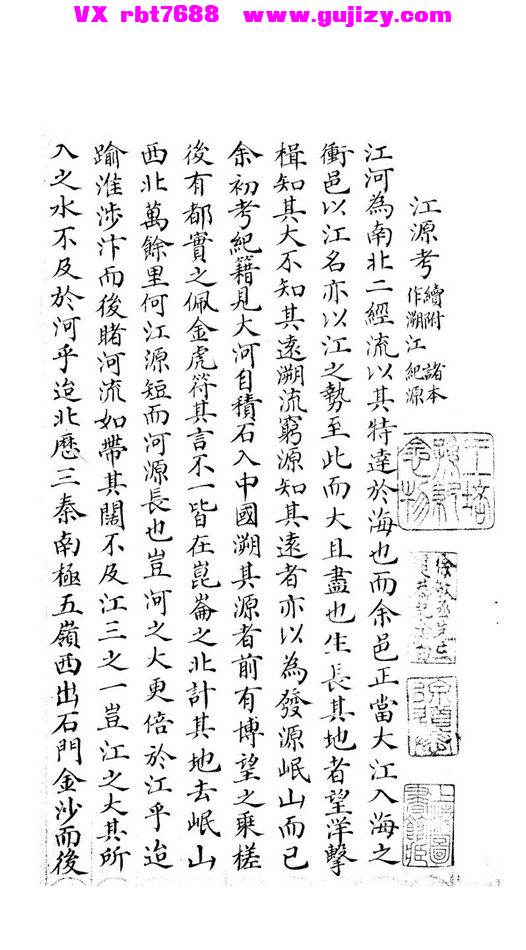 VX rbt7688 www.gujizy.com
江源考 續附 諸本作溯江紀源
江河為南北二經流以其特達於海也而余邑正當大江入海之
衝邑以江名亦以江之勢至此而大且盡也生長其地者望洋擊
楫知其大不知其遠溯流窮源知其遠者亦以為發源岷山而已
余初考紀籍見大河自積石入中國溯其源者前有博望之乘槎
後有都實之佩金虎符其言不一皆在崑崙之北計其地去岷山
西北萬餘里何江源短而河源長也豈河之大更倍於江乎迨
踰淮涉汴而後睹河流如帶其闊不及江三之一豈江之大其所
入之水不及於河乎迨北歷三秦南極五嶺西出石門金沙而後
上海圖書館藏